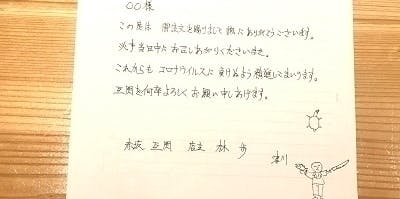 〇〇様
この度は 御注文を賜りまして 誠にありがとうございます。
必ず当日中にお召しあがりくださいませ。
これからも コロナウイルスに 負けぬよう 精進してまいります。
互閃を何卒よろしくお願い申しあげます。
赤坂 互閃 店主 林 歩